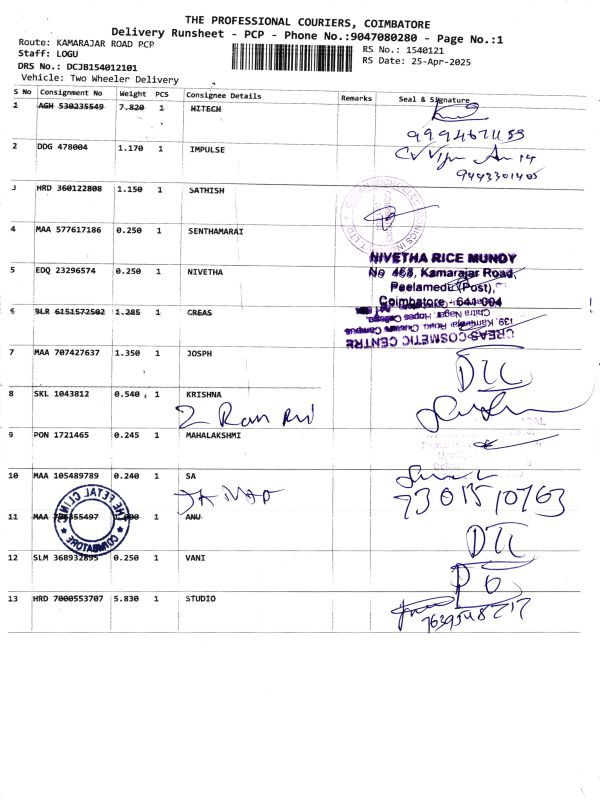 THE PROFESSIONAL COURIERS, COIMBATORE
Delivery Runsheet - PCP - Phone No.:9047080280 - Page No.:1
Route: KAMARAJAR ROAD PCP
RS No.: 1540121
Staff: LOGU
RS Date: 25-Apr-2025
DRS No.: DCJB154012101
Vehicle: Two Wheeler Delivery
S No Consignment No Weight PCS Consignee Details Remarks Seal & Signature
1 AGH 530235549 7.820 1 HITECH
2 DDG 478004 1.170 1 IMPULSE
9443301405
3 HRD 360122808 1.150 1 SATHISH
4 MAA 577617186 0.250 1 SENTHAMARAI
NIVETHA RICE MUNDY
No 468, Kamarajar Road,
Peelamedu (Post),
Coimbatore - 641 004
5 EDQ 23296574 0.250 1 NIVETHA
6 BLR 6151572502 1.285 1 CREAS
CREAS COSMETIC CENTRE
7 MAA 707427637 1.350 1 JOSPH
DTC
8 SKL 1043812 0.540 1 KRISHNA
9 PON 1721465 0.245 1 MAHALAKSHMI
10 MAA 105489789 0.240 1 SA
7301510763
THE FETAL CLINIC
COIMBATORE
11 MAA 1 ANU
DTC
12 SLM 368932895 0.250 1 VANI
13 HRD 7000553707 5.830 1 STUDIO